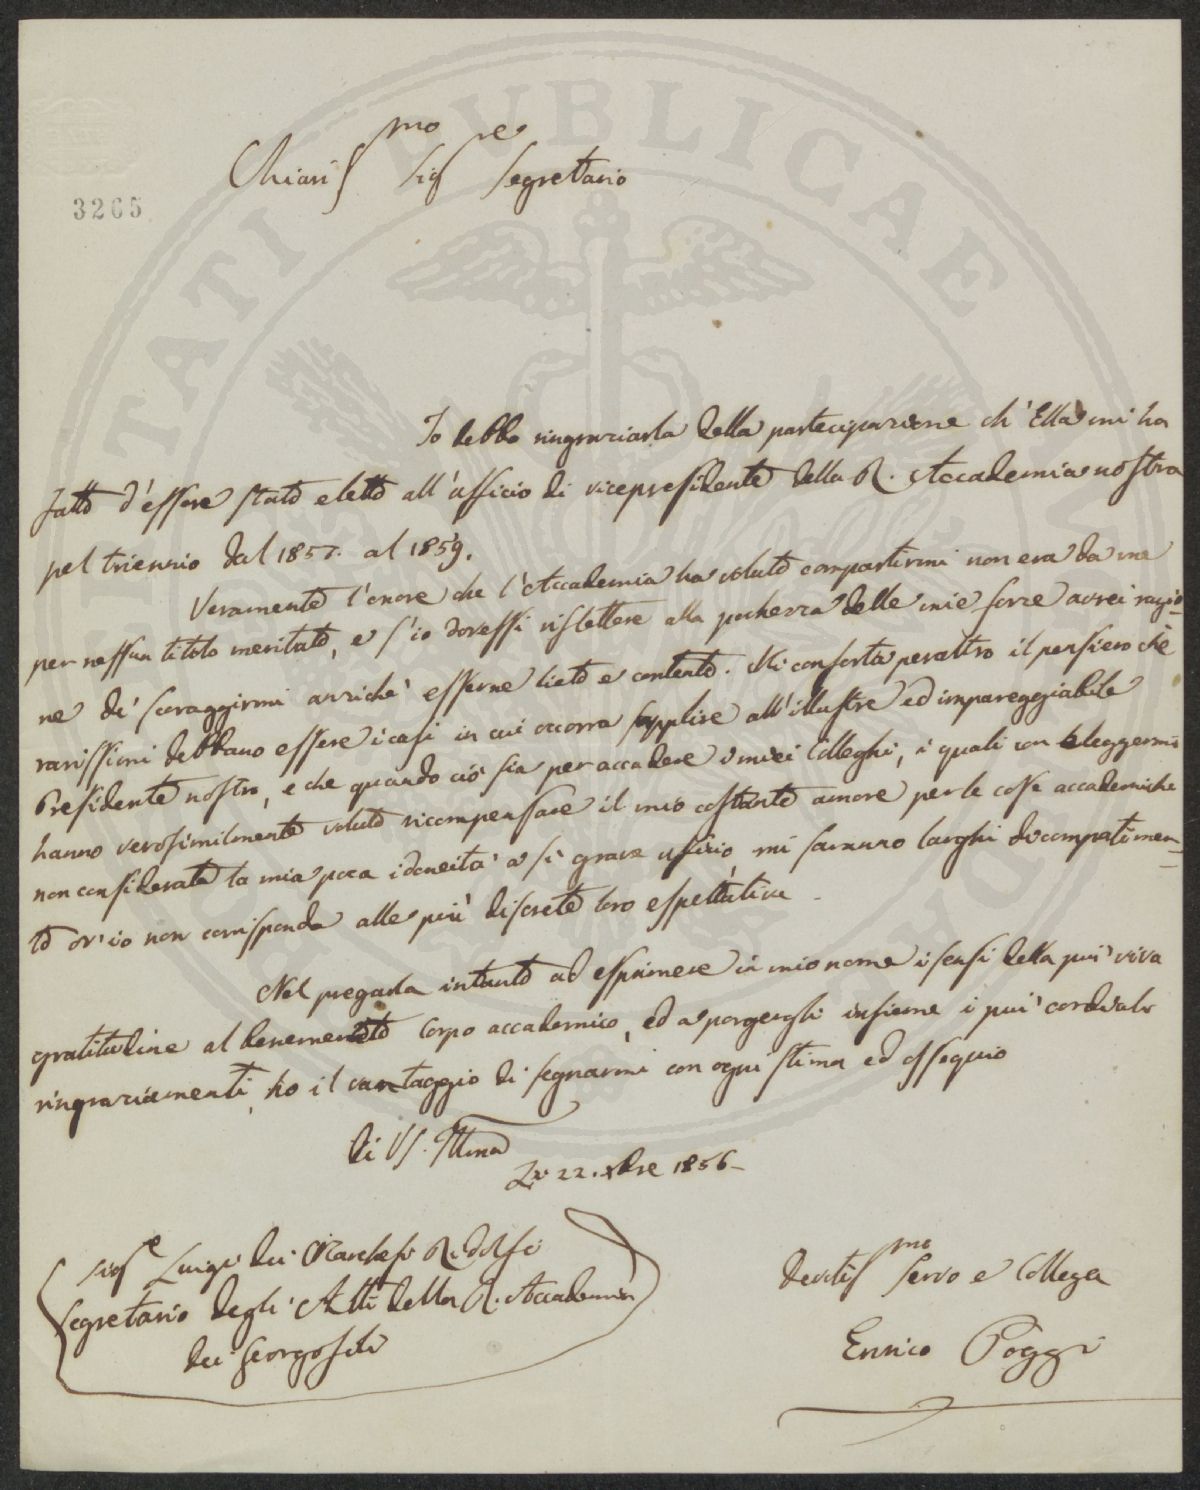 Chiariss.mo Sig.re Segretario
3265
Io debbo ringraziarla della partecipazione ch'Ella mi ha
fatto d'essere stato eletto all'ufficio di vicepresidente della R. Accademia nostra
pel triennio dal 1857. al 1859.
Veramente l'onore che l'Accademia ha voluto compartirmi non era da me
per nessun titolo meritato, e s'io dovessi riflettere alla pochezza delle mie forze avrei ragio-
ne di scoraggirmi anziché esserne lieto e contento. Mi conforta peraltro il pensiero che
rarissimi debbano essere i casi in cui occorra supplire all'illustre ed impareggiabile
Presidente nostro, e che quando ciò sia per accadere i miei Colleghi, i quali con eleggermi
hanno verosimilmente voluto ricompensare il mio costante amore per le cose accademiche
non considerata la mia poca idoneità a sì grave uficio mi saranno larghi di compatimen-
to ov'io non corrisponda alle più discrete loro espettative.
Nel pregarla intanto ad esprimere in mio nome i sensi della più viva
gratitudine al benemerito Corpo accademico, ed a porgergli insieme i più cordiali
ringraziamenti, ho il vantaggio di segnarmi con ogni stima ed ossequio
di VS. Illma
22. xbre 1856
Sig.re Luigi dei Marchesi Ridolfi
Segretario degli Atti della R. Accademia
dei Georgofili
Devotiss.mo Servo e Collega
Enrico Poggi
PVBLICAE